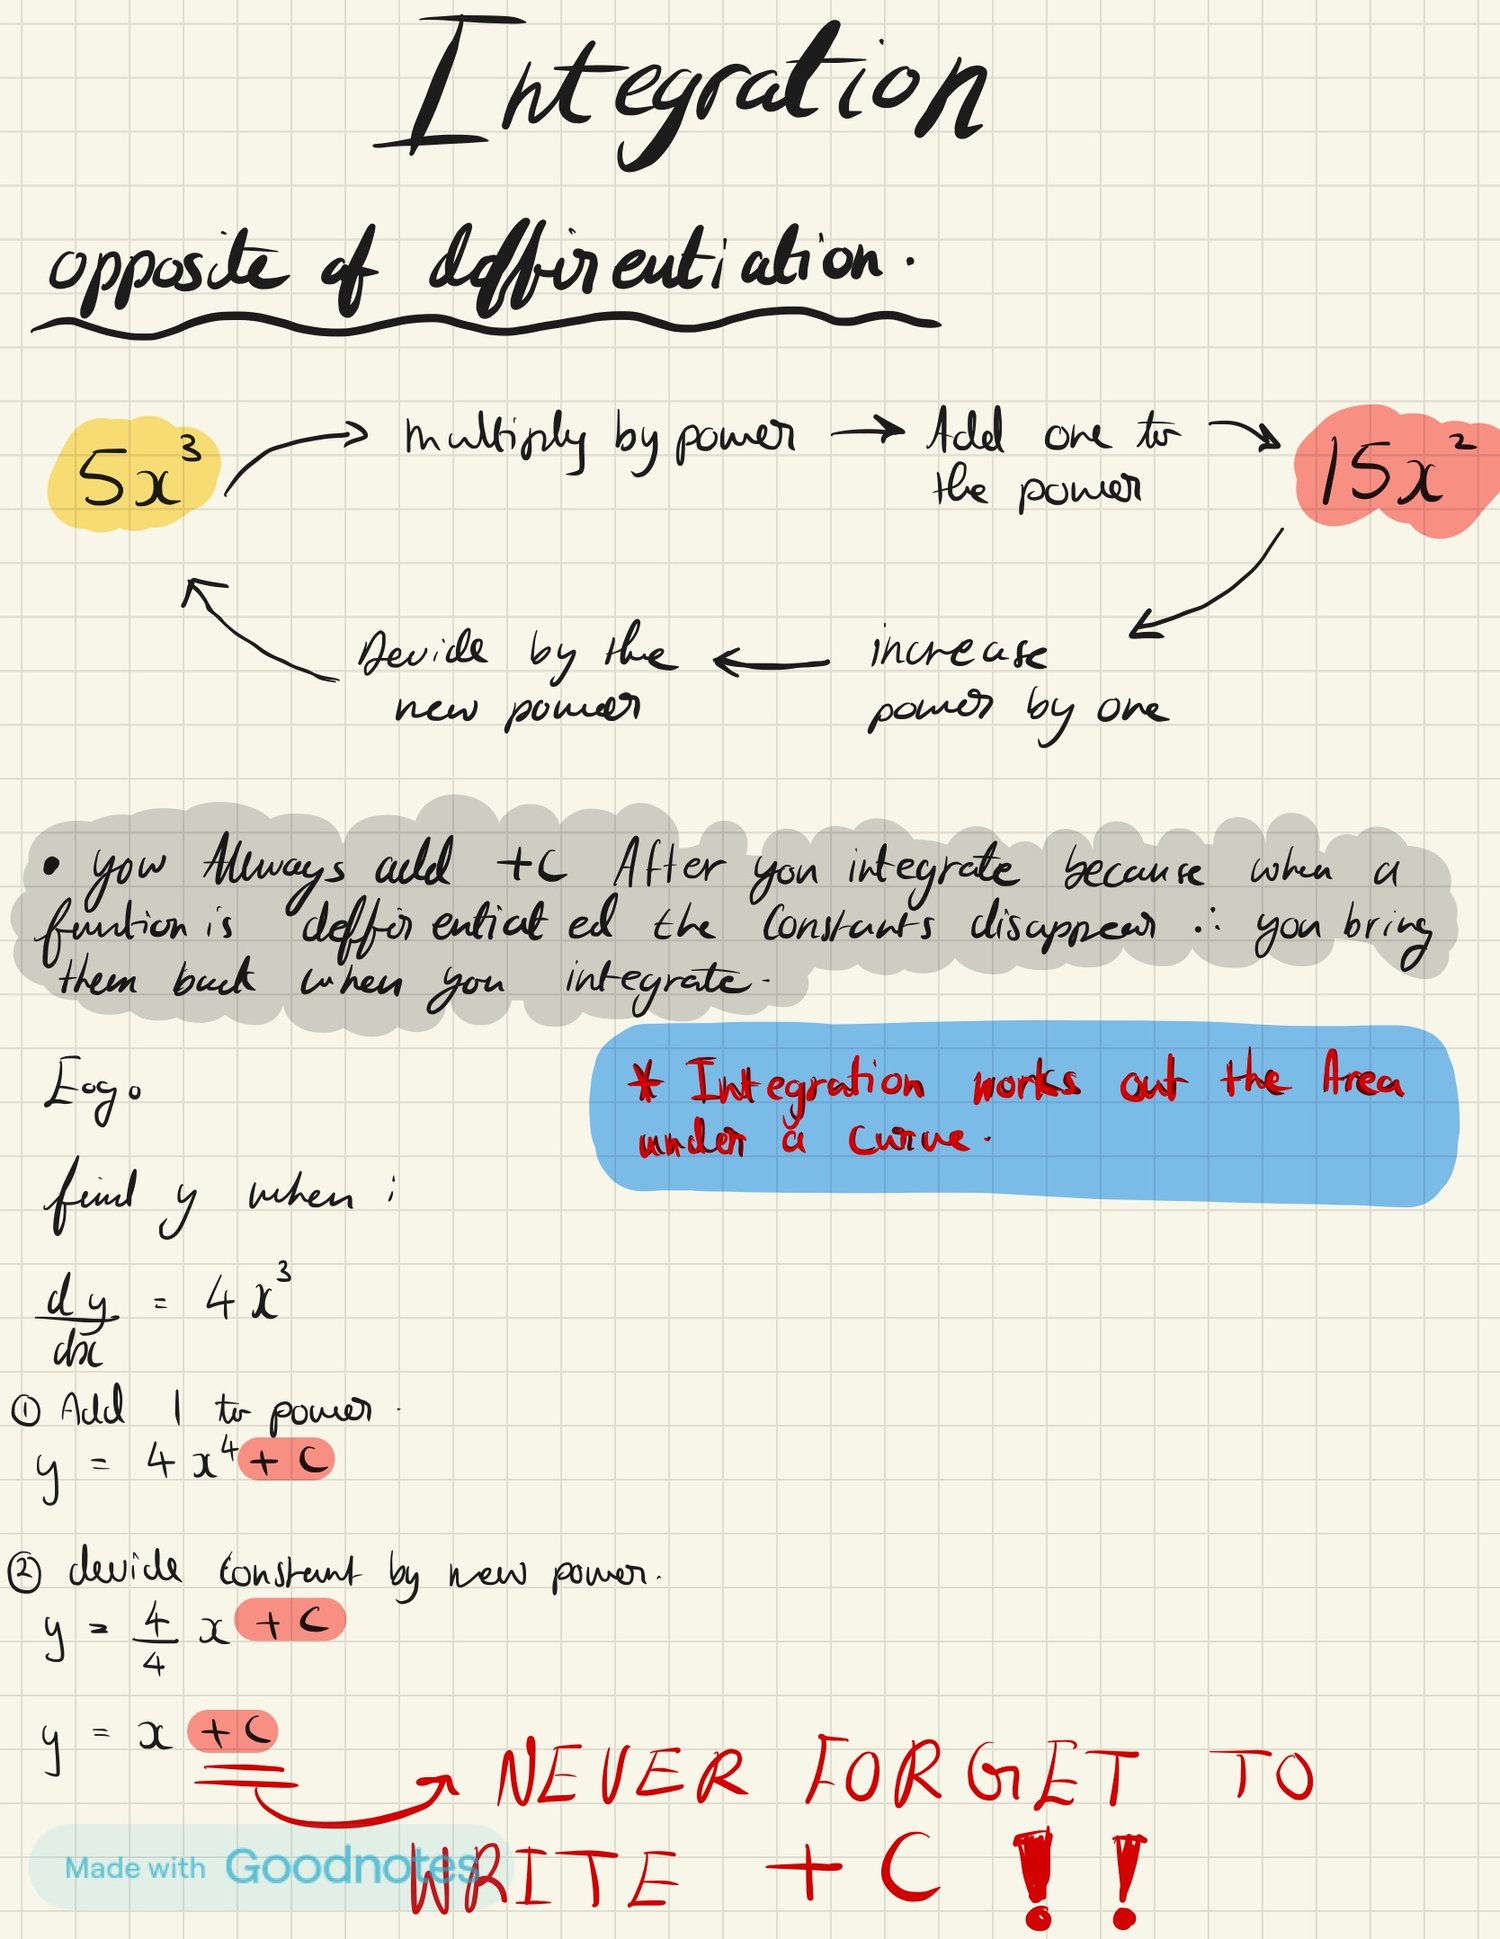 Integration
opposite of deffirentiation.
5x³ → multiply by power → Add one to → 15x²
the power
Devide by the ← increase
new power power by one
• you Allways add +C After you integrate because when a
funtion is deffirentiated the Constants disappear ∴ you bring
them back when you integrate.
E.g.
* Integration works out the Area
under a curve.
find y when :
dy/dx = 4x³
① Add 1 to power.
y = 4x⁴ + C
② devide constant by new power.
y = 4/4 x + C
y = x + C
NEVER FORGET TO
WRITE + C !!
Made with Goodnotes